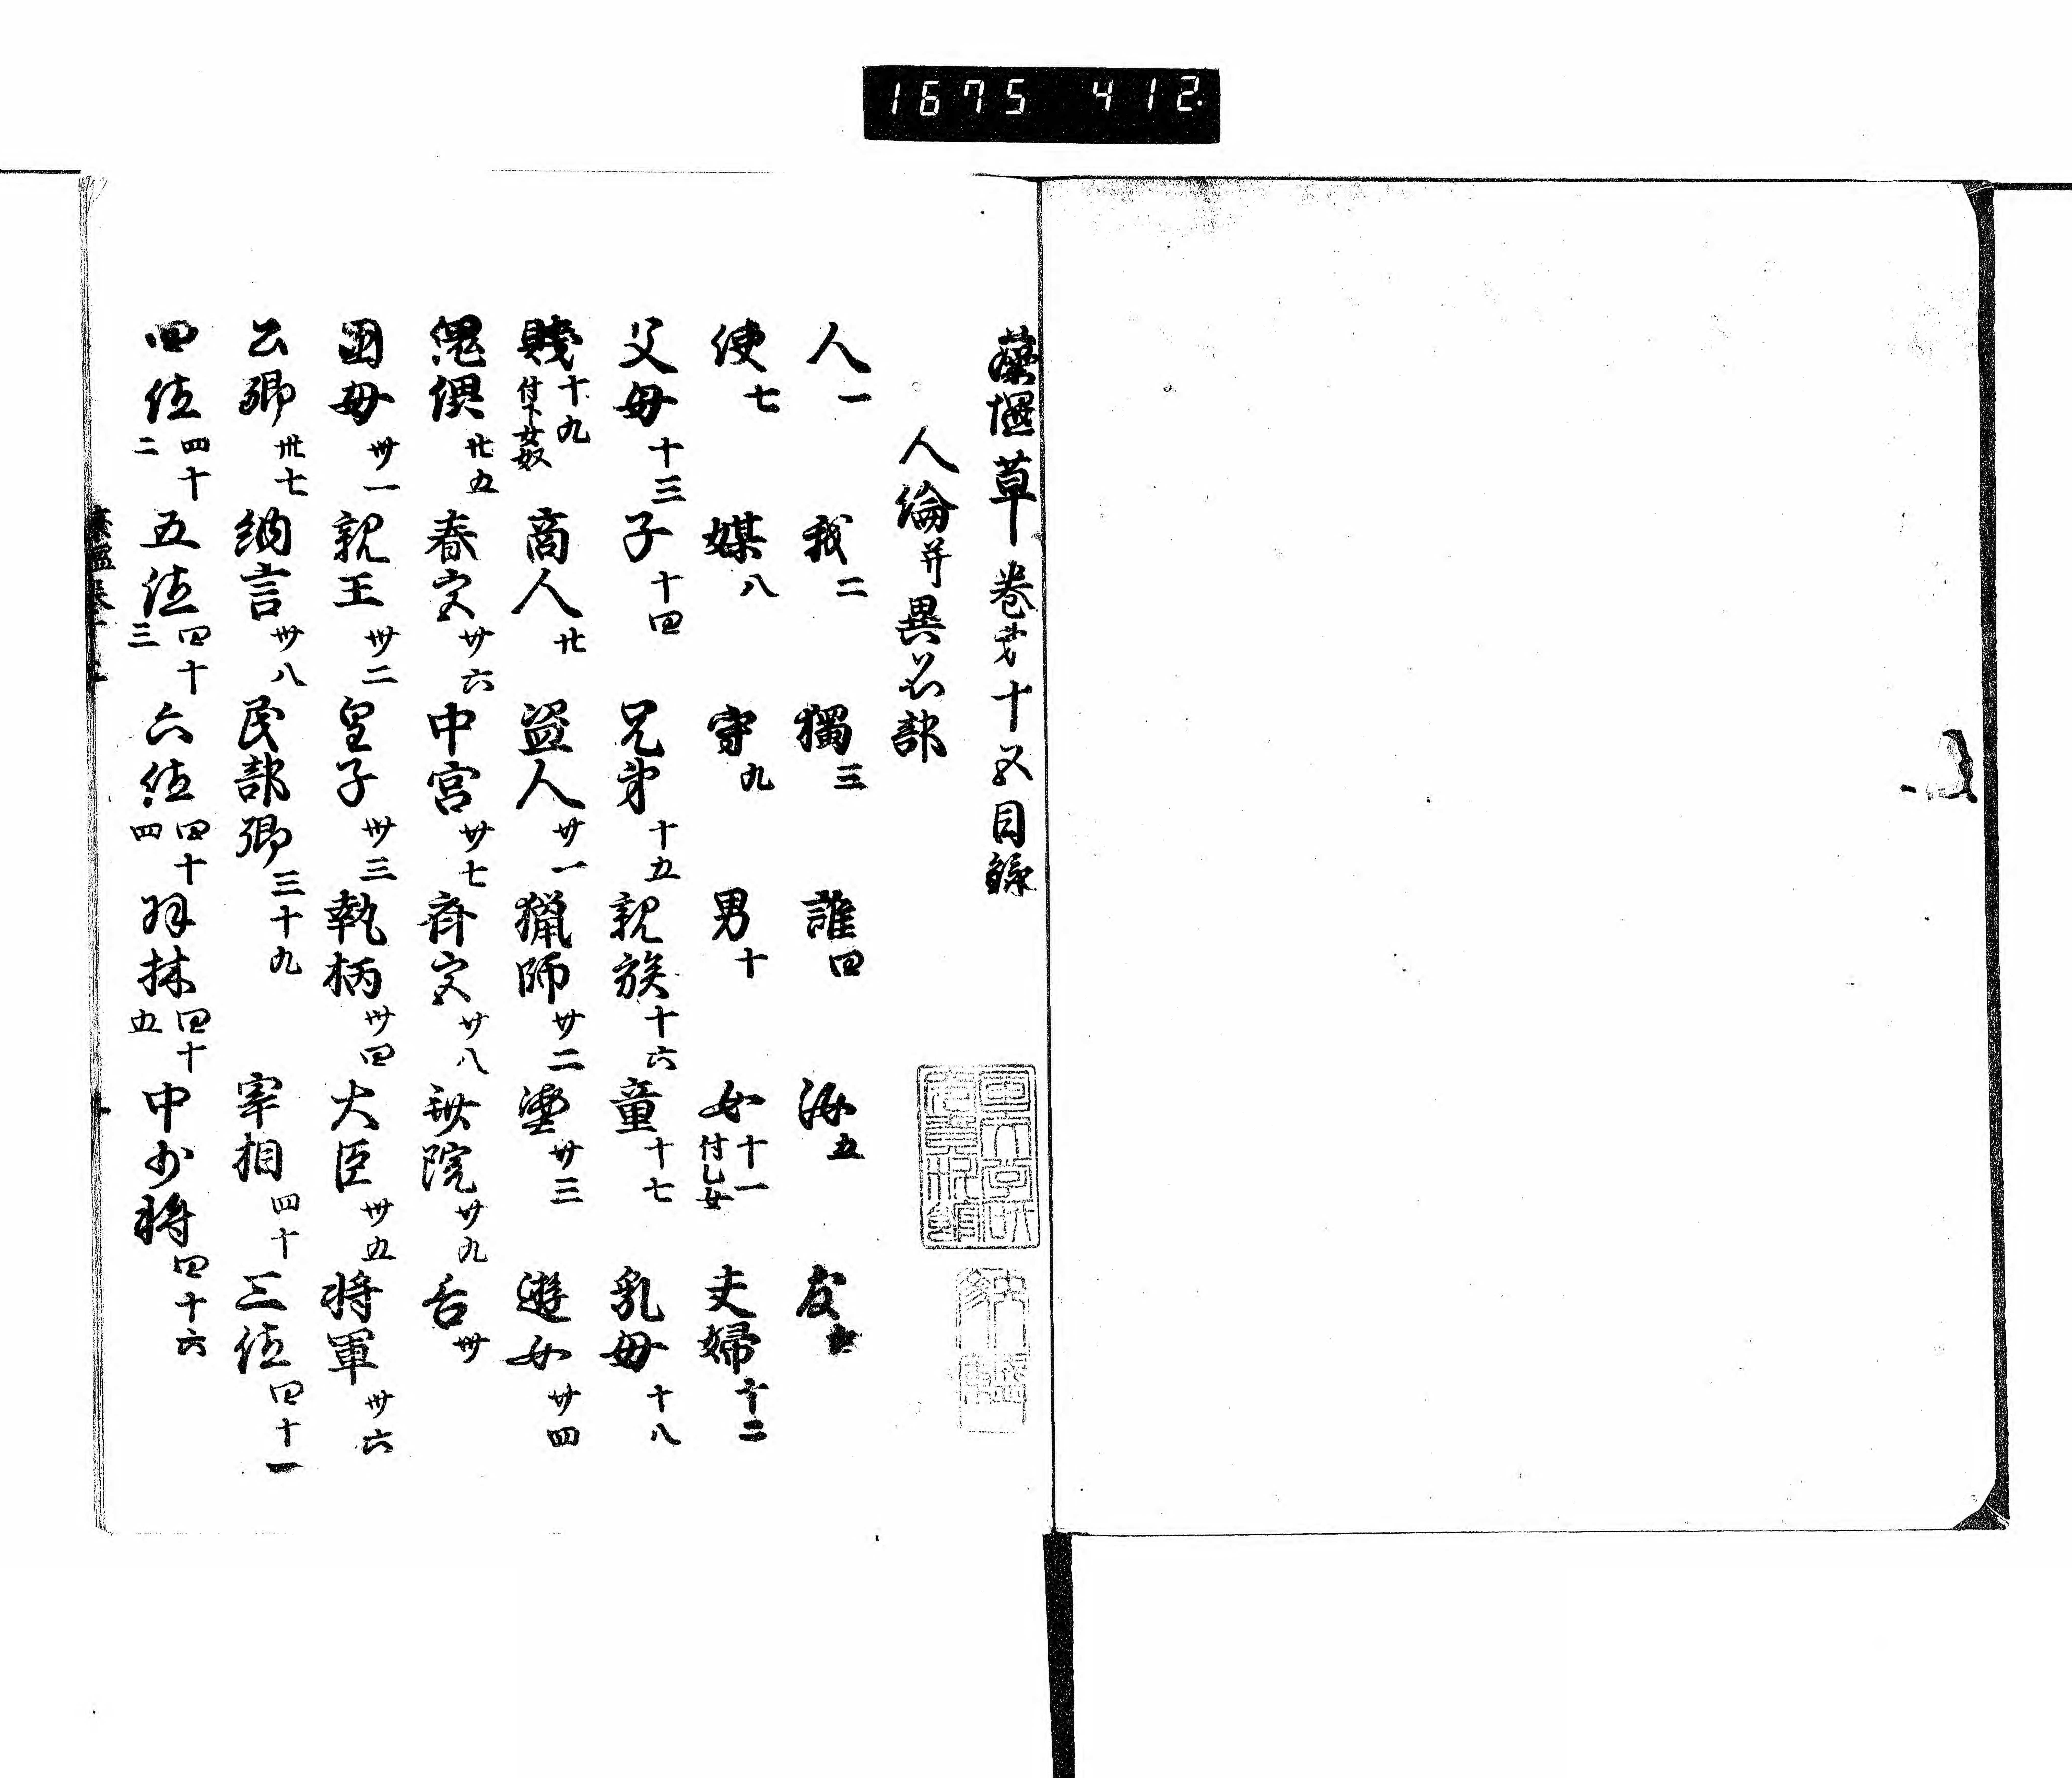 1675 412
藻塩草卷第十五目録
人倫并異名部
人一 我二 獨三 誰四 汝五 友六
使七 媒八 守九 男十 女十一付乙女 夫婦十二
父母十三 子十四 兄弟十五 親族十六 童十七 乳母十八
賤十九付下女奴 商人廿 盗人廿一 猟師廿二 蜑廿三 遊女廿四
傀儡廿五 春宮廿六 中宮廿七 斎宮廿八 女院廿九 后卅
国母卅一 親王卅二 皇子卅三 執柄卅四 大臣卅五 将軍卅六
公卿卅七 納言卅八 民部卿三十九 宰相四十 三位四十一
四位四十二 五位四十三 六位四十四 羽林四十五 中少将四十六